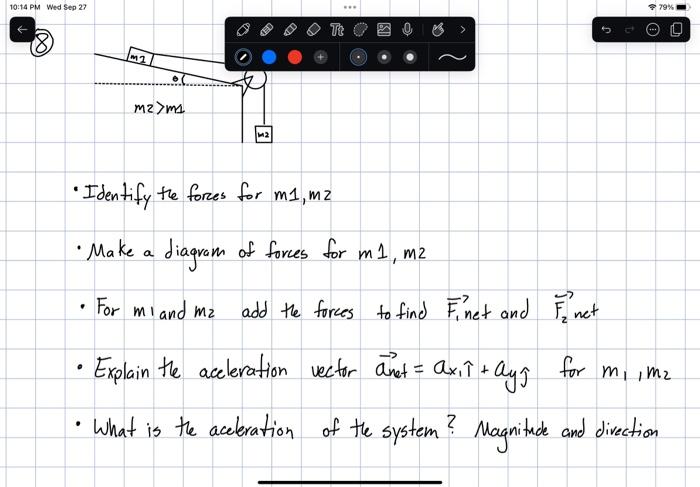 10:14 PM Wed Sep 27
79%
Tt
8
m1
θ
m2>m1
m2
• Identify the forces for m1, m2
• Make a diagram of forces for m1, m2
• For m1 and m2 add the forces to find F₁net and F₂net
• Explain the aceleration vector a⃗net = ax î + ay ĵ for m1, m2
• What is the aceleration of the system? Magnitude and direction